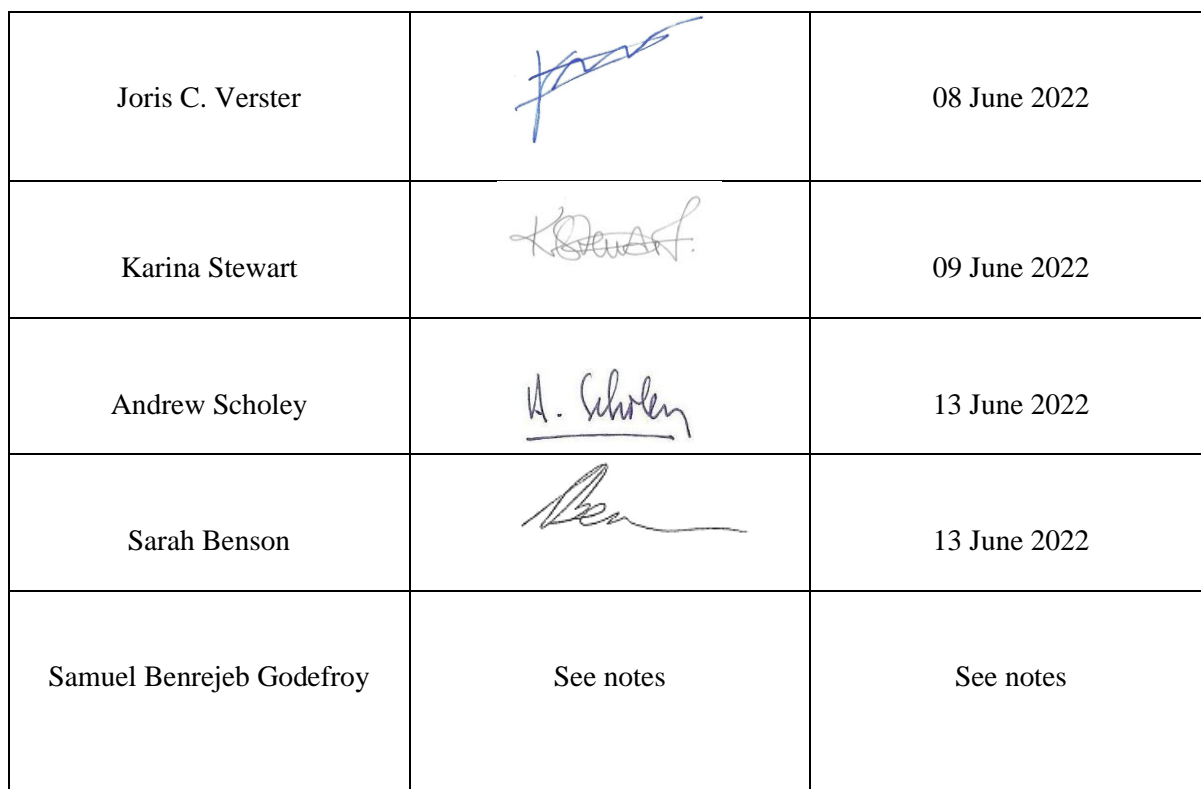 Joris C. Verster
08 June 2022
Karina Stewart
K Stewart.
09 June 2022
Andrew Scholey
A. Scholey
13 June 2022
Sarah Benson
Ben
13 June 2022
Samuel Benrejeb Godefroy
See notes
See notes